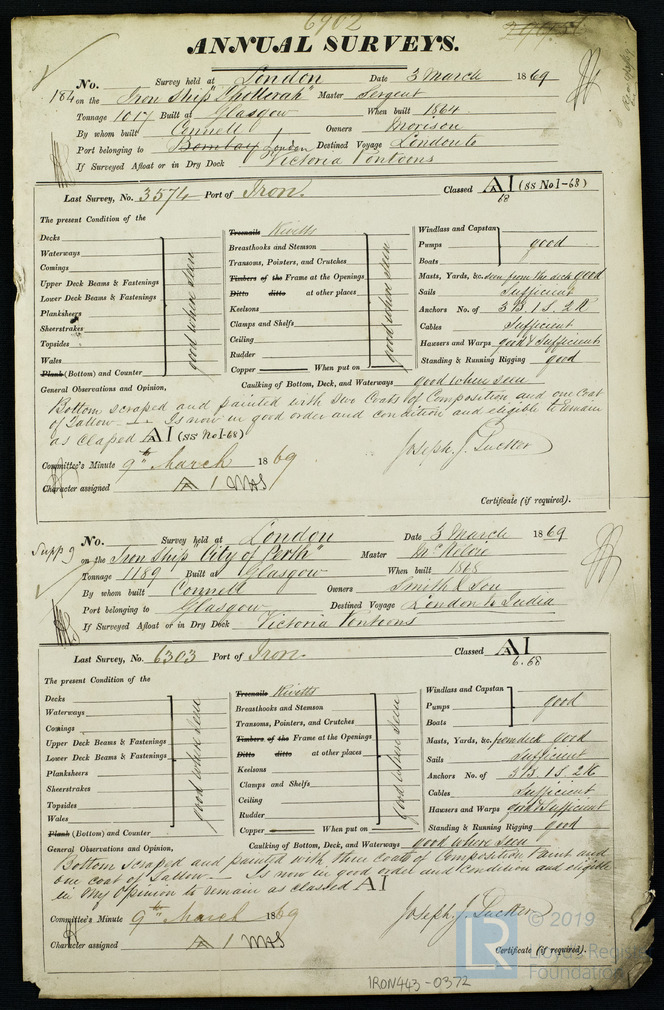 6902
ANNUAL SURVEYS.
No. Survey held at London Date 3 March 1869
184 on the Iron Ship "Shotterah" Master Sergent
Tonnage 1017 Built at Glasgow When built 1864
By whom built Connell Owners Morison
Port belonging to Bombay London Destined Voyage London to
If Surveyed Afloat or in Dry Dock Victoria Pontoons
Last Survey, No. 3574 Port of Iron. Classed A1 (SS No1-68)
68
The present Condition of the
Decks
Waterways
Comings
Upper Deck Beams & Fastenings
Lower Deck Beams & Fastenings
Planksheers
Sheerstrakes
Topsides
Wales
Plank (Bottom) and Counter
good when seen
Treenails Rivetts
Breasthooks and Stemson
Transoms, Pointers, and Crutches
Timbers of the Frame at the Openings
Ditto ditto at other places
Keelsons
Clamps and Shelfs
Ceiling
Rudder
Copper When put on
good when seen
Windlass and Capstan
Pumps good
Boats
Masts, Yards, &c. seen from the deck good
Sails Sufficient
Anchors No. of 3 B. 1 S. 2 K
Cables Sufficient
Hawsers and Warps good & Sufficient
Standing & Running Rigging good
General Observations and Opinion, Caulking of Bottom, Deck, and Waterways good when seen
Bottom scraped and painted with two Coats of Composition and one Coat
of Tallow. Is now in good order and condition and eligible to remain
as claped A1 (SS No1-68)
Joseph J. Tucker
Committee's Minute 9th March 1869
Character assigned A 1
Certificate (if required).
No. Survey held at London Date 3 March 1869
Supp 9 on the Iron Ship "City of Perth" Master McKelvie
Tonnage 1189 Built at Glasgow When built 1868
By whom built Connell Owners Smith & Son
Port belonging to Glasgow Destined Voyage London to India
If Surveyed Afloat or in Dry Dock Victoria Pontoons
Last Survey, No. 6303 Port of Iron. Classed A1
6.68
The present Condition of the
Decks
Waterways
Comings
Upper Deck Beams & Fastenings
Lower Deck Beams & Fastenings
Planksheers
Sheerstrakes
Topsides
Wales
Plank (Bottom) and Counter
good where seen
Treenails Rivetts
Breasthooks and Stemson
Transoms, Pointers, and Crutches
Timbers of the Frame at the Openings
Ditto ditto at other places
Keelsons
Clamps and Shelfs
Ceiling
Rudder
Copper When put on
good where seen
Windlass and Capstan
Pumps good
Boats
Masts, Yards, &c. from deck good
Sails Sufficient
Anchors No. of 3 B. 1 S. 2 K
Cables Sufficient
Hawsers and Warps good & Sufficient
Standing & Running Rigging good
General Observations and Opinion, Caulking of Bottom, Deck, and Waterways good where seen
Bottom scraped and painted with three coats of Composition Paint and
one coat of Tallow. Is now in good order and Condition and eligible
in my Opinion to remain as classed A1
Joseph J. Tucker
Committee's Minute 9th March 1869
Character assigned A 1
Certificate (if required).
© 2019
LR
Lloyd's Register
Foundation
IRON443-0372